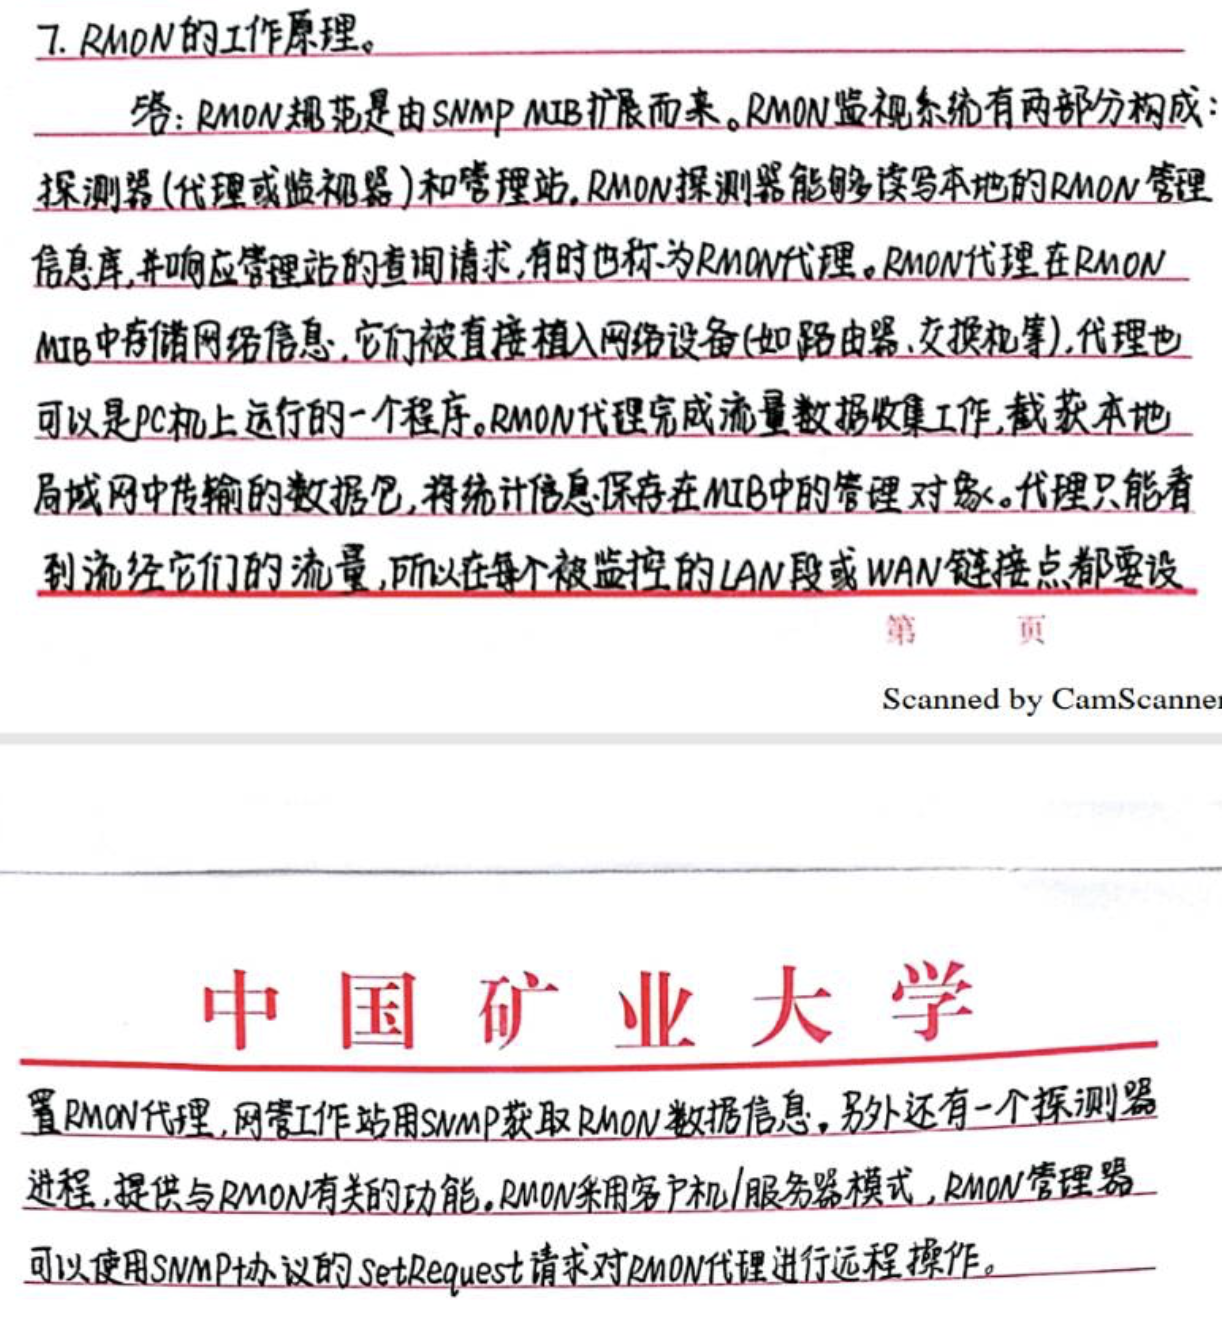 7. RMON的工作原理。
答：RMON规范是由SNMP MIB扩展而来。RMON监视系统有两部分构成：
探测器(代理或监视器)和管理站。RMON探测器能够读写本地的RMON管理
信息库，并响应管理站的查询请求，有时也称为RMON代理。RMON代理在RMON
MIB中存储网络信息，它们被直接植入网络设备(如路由器、交换机等)，代理也
可以是PC机上运行的一个程序。RMON代理完成流量数据收集工作，截获本地
局域网中传输的数据包，将统计信息保存在MIB中的管理对象。代理只能看
到流经它们的流量，所以在每个被监控的LAN段或WAN链接点都要设
第 页
Scanned by CamScanner
中国矿业大学
置RMON代理，网管工作站用SNMP获取RMON数据信息。另外还有一个探测器
进程，提供与RMON有关的功能。RMON采用客户机/服务器模式，RMON管理器
可以使用SNMP协议的SetRequest请求对RMON代理进行远程操作。